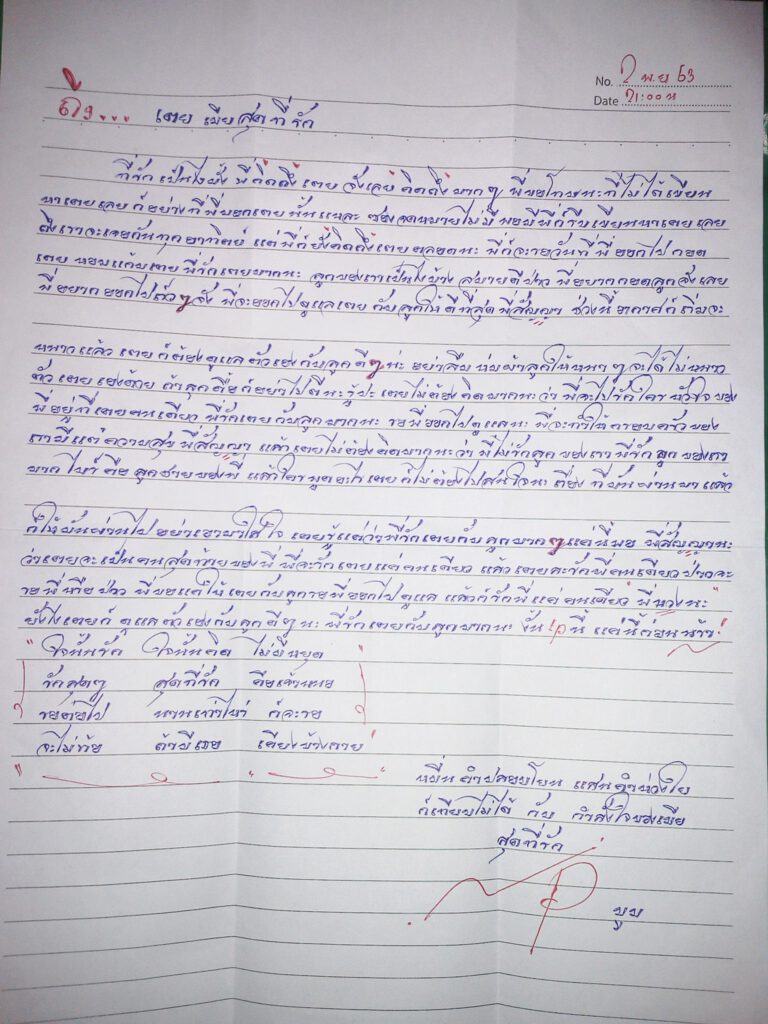 No. 2 พ.ย 63
Date 21:00 น
ถึง... เตย เมียสุดที่รัก
ที่รักเป็นไงบ้าง พี่คิดถึงเตย จังเลย คิดถึงมากๆ พี่ขอโทษนะที่ไม่ได้เขียน
หาเตยเลย ก็อย่างที่พี่บอกเตยนั้นแหละ ซองจดหมายไม่มี พอมีพี่ก็รีบเขียนหาเตยเลย
ถึงเราจะเจอกันทุกอาทิตย์ แต่พี่ก็ยังคิดถึงเตยตลอดนะ พี่ก็จะรอวันที่พี่ออกไปกอด
เตย หอมแก้มเตย พี่รักเตยมากนะ ลูกของเราเป็นไงบ้าง สบายดีป่าว พี่อยากกอดลูกจังเลย
พี่อยากออกไปเร็วๆจัง พี่จะออกไปดูแลเตย กับลูกให้ดีที่สุด พี่สัญญา ช่วงนี้อากาศก็เริ่มจะ
หนาวแล้ว เตยก็ต้องดูแลตัวเองกับลูกดีๆนะ อย่าลืมห่มผ้าลูกให้หนาๆจะได้ไม่หนาว
ตัวเตยเองด้วย ถ้าลูกดื้อก็อย่าไปตีนะรู้ปะ เตยไม่ต้องคิดมากนะว่าพี่จะไปรักใคร หัวใจของ
พี่อยู่ที่เตยคนเดียว พี่รักเตยกับลูกมากนะ รอพี่ออกไปดูแลนะ พี่จะทำให้ครอบครัวของ
เรามีแต่ความสุข พี่สัญญา แล้วเตยไม่ต้องคิดมากนะว่าพี่ไม่รักลูกของเรา พี่รักลูกของเรา
มาก ไบร์ คือ ลูกชายของพี่ แล้วใครพูดอะไรเตยก็ไม่ต้องไปสนใจนะ เรื่องที่มันผ่านมาแล้ว
ก็ให้มันผ่านไป อย่าเอามาใส่ใจ เตยรู้แต่ว่าพี่รักเตยกับลูกมากๆแค่นี้พอ พี่สัญญานะ
ว่าเตยจะเป็นคนสุดท้ายของพี่ พี่จะรักเตยแค่คนเดียว แล้วเตยละรักพี่คนเดียวป่าวจะ
รอพี่หรือป่าว พี่ขอแค่ให้เตยกับลูกรอพี่ออกไปดูแล แล้วก็รักพี่แค่คนเดียว พี่หวงนะ"
ยังไงเตยก็ดูแลตัวเองกับลูกดีๆนะ พี่รักเตยกับลูกมากนะ งั้น นี้ แค่นี้ก่อนน้า!
" ใจนั้นรัก ใจนั้นคิด ไม่มีหยุด "
รักสุดๆ สุดที่รัก คือเจ้าหนอ
รอต่อไป นานเท่าไหร่ ก็จะรอ
จะไม่ท้อ ถ้ามีเธอ เคียงข้างกาย
หมื่นคำปลอบโยน แสนคำห่วงใย
ก็เทียบไม่ได้ กับ กำลังใจของเมีย
สุดที่รัก